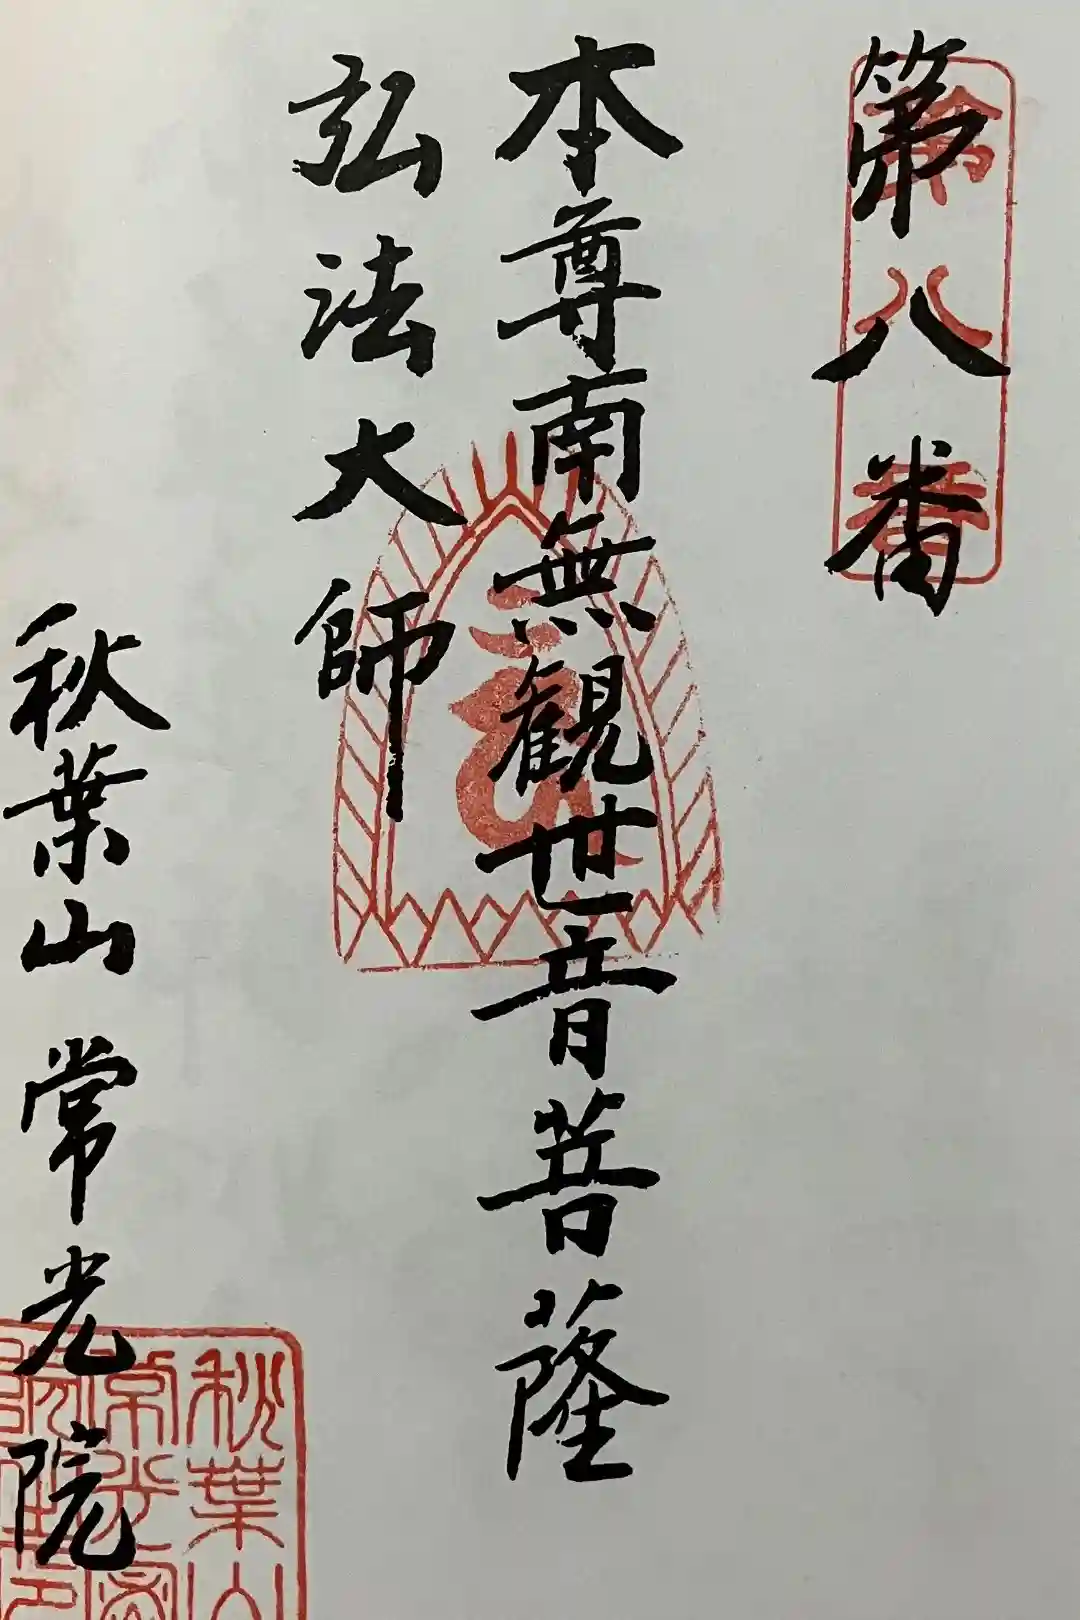 第八番
第八番
本尊南無観世音菩薩
弘法大師
秋葉山常光院
秋葉山
常光
院